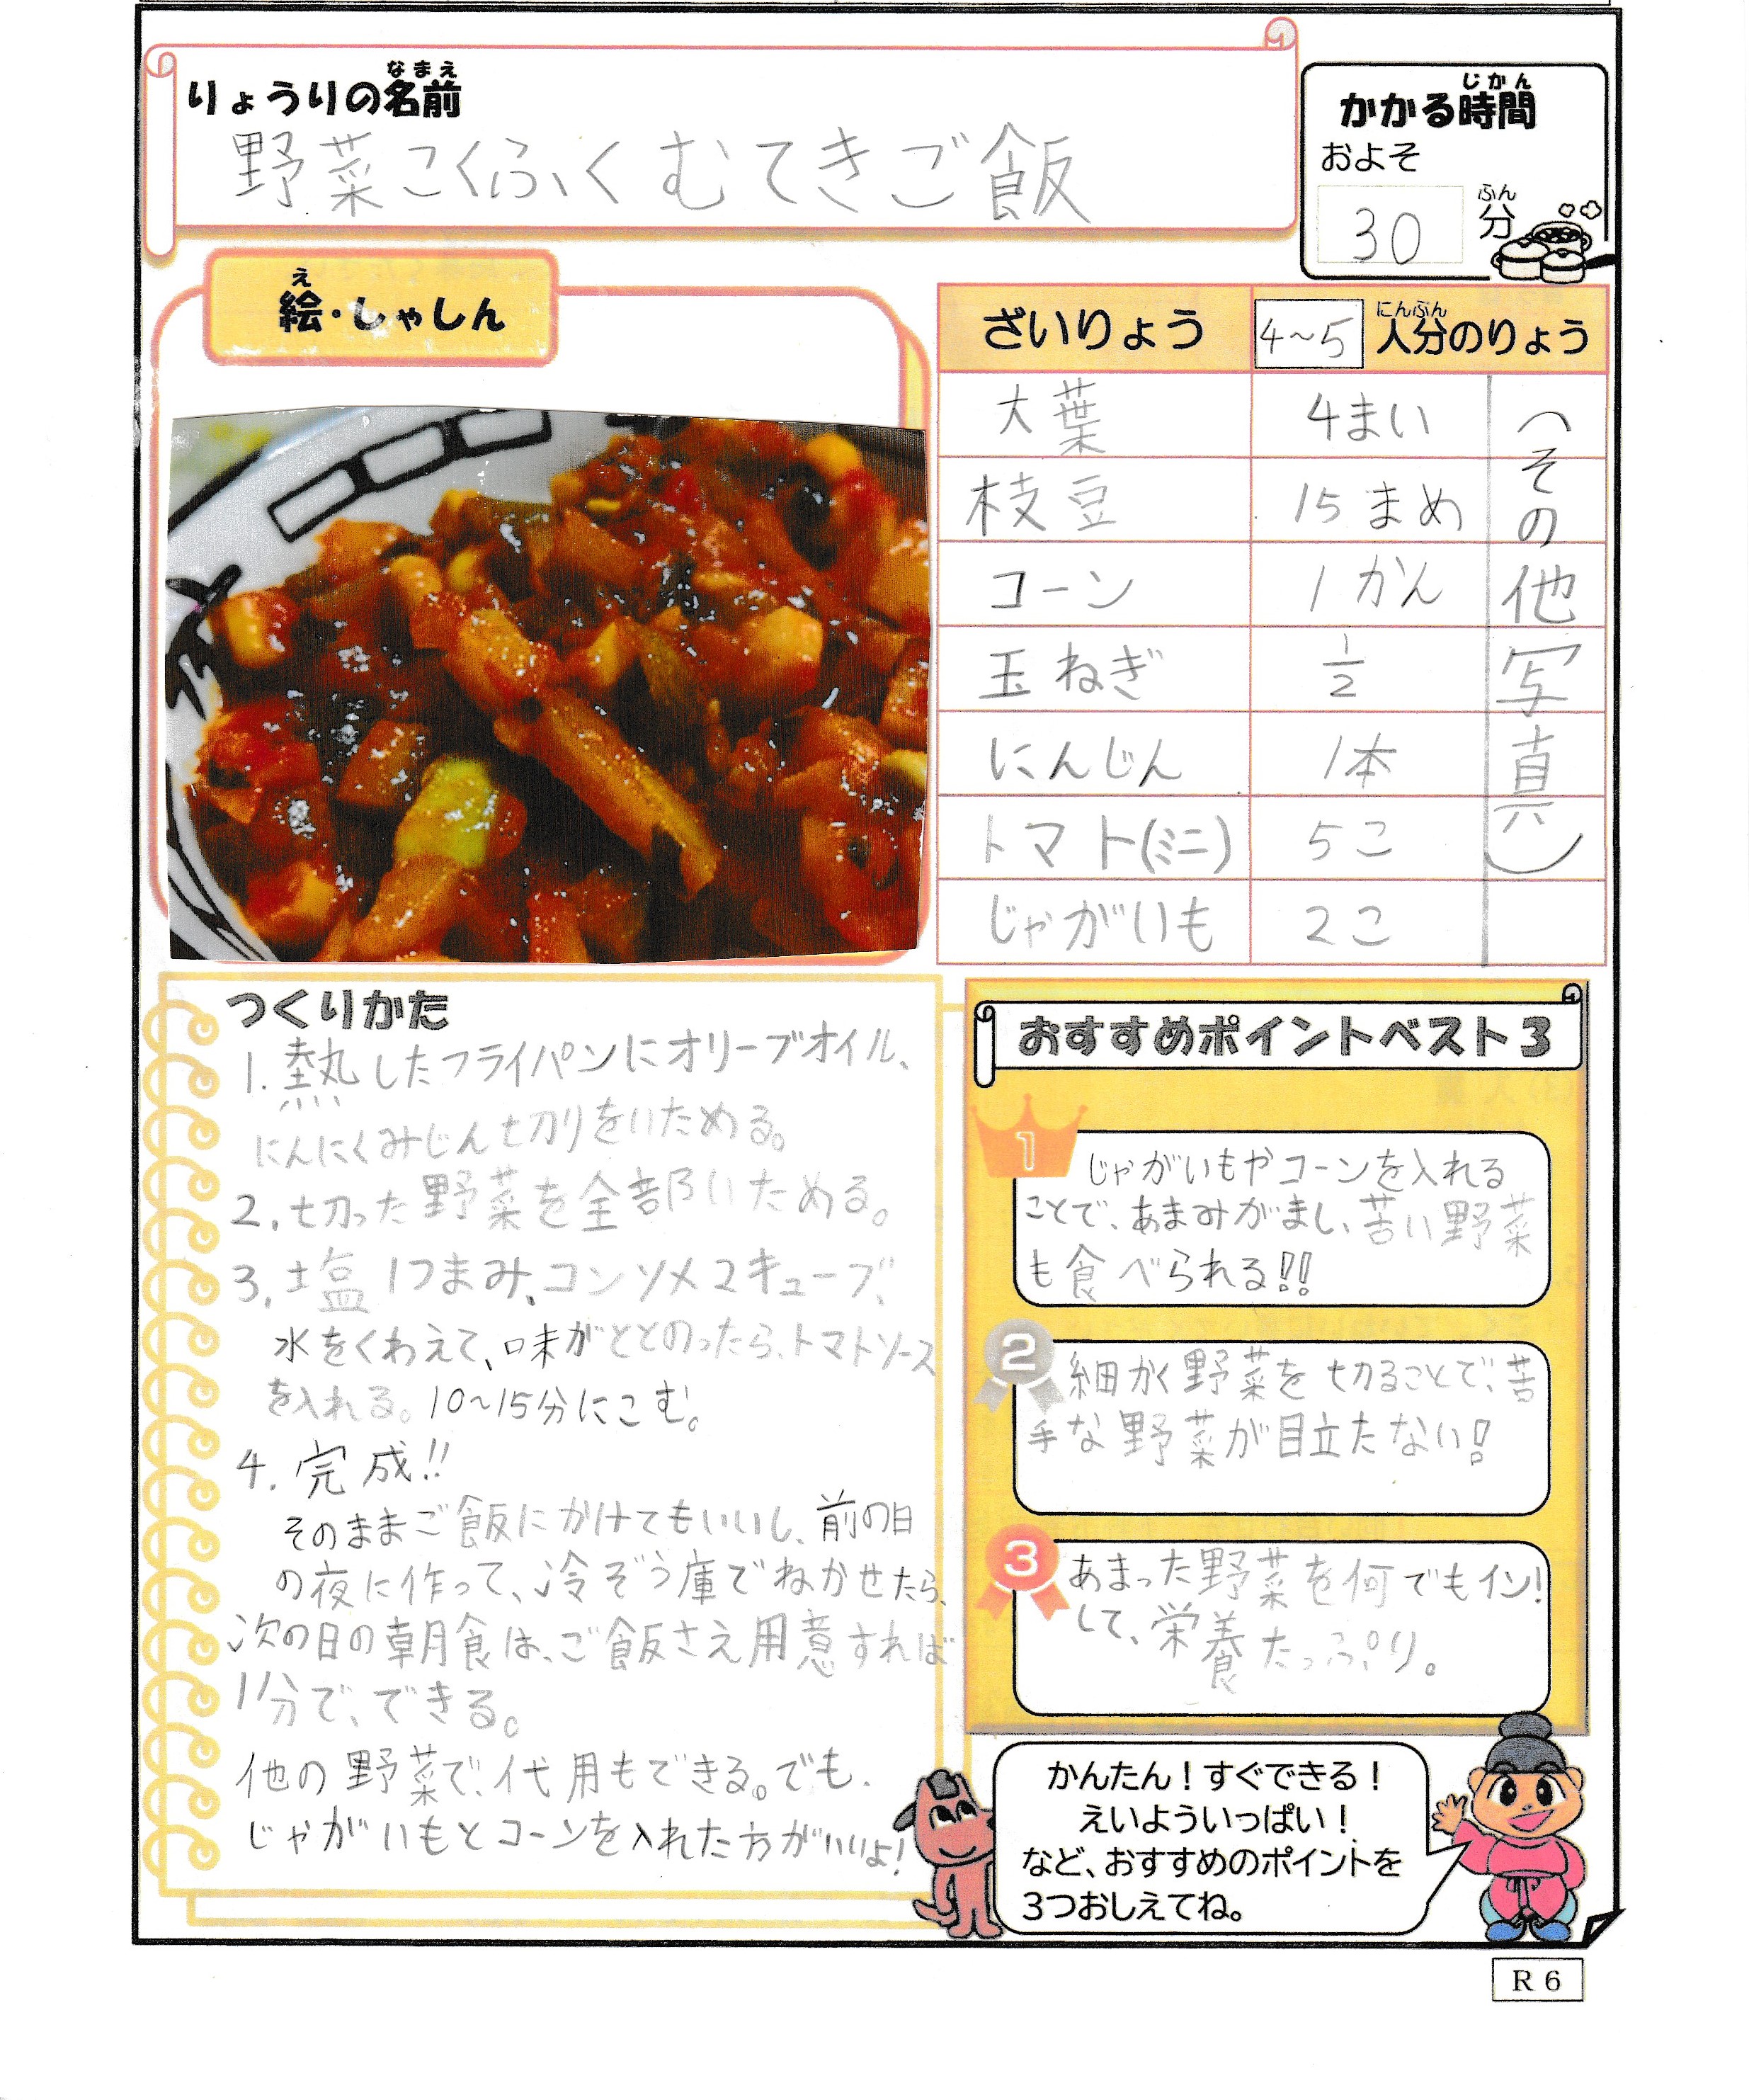 りょうりの名前
なまえ
野菜こくふくむてきご飯
かかる時間
じかん
およそ
30 分
ふん
絵・しゃしん
え
ざいりょう 4~5 人分のりょう
にんぶん
大葉 4まい
枝豆 15まめ
コーン 1かん
玉ねぎ 1/2
にんじん 1本
トマト(ミニ) 5こ
じゃがいも 2こ
(その他写真)
つくりかた
1. 熱したフライパンにオリーブオイル、
にんにくみじん切りをいためる。
2. 切った野菜を全部いためる。
3. 塩1つまみ、コンソメ2キューブ、
水をくわえて、味がととのったら、トマトソース
を入れる。10~15分にこむ。
4. 完成!!
そのままご飯にかけてもいいし、前の日
の夜に作って、冷ぞう庫でねかせたら、
次の日の朝食は、ご飯さえ用意すれば
1分で、できる。
他の野菜で、代用もできる。でも、
じゃがいもとコーンを入れた方がいいよ!
おすすめポイントベスト3
1
じゃがいもやコーンを入れる
ことで、あまみがまし、苦い野菜
も食べられる!!
2
細かく野菜を切ることで、苦
手な野菜が目立たない!
3
あまった野菜を何でもイン!
して、栄養たっぷり。
かんたん!すぐできる!
えいよういっぱい!
など、おすすめのポイントを
3つおしえてね。
R6